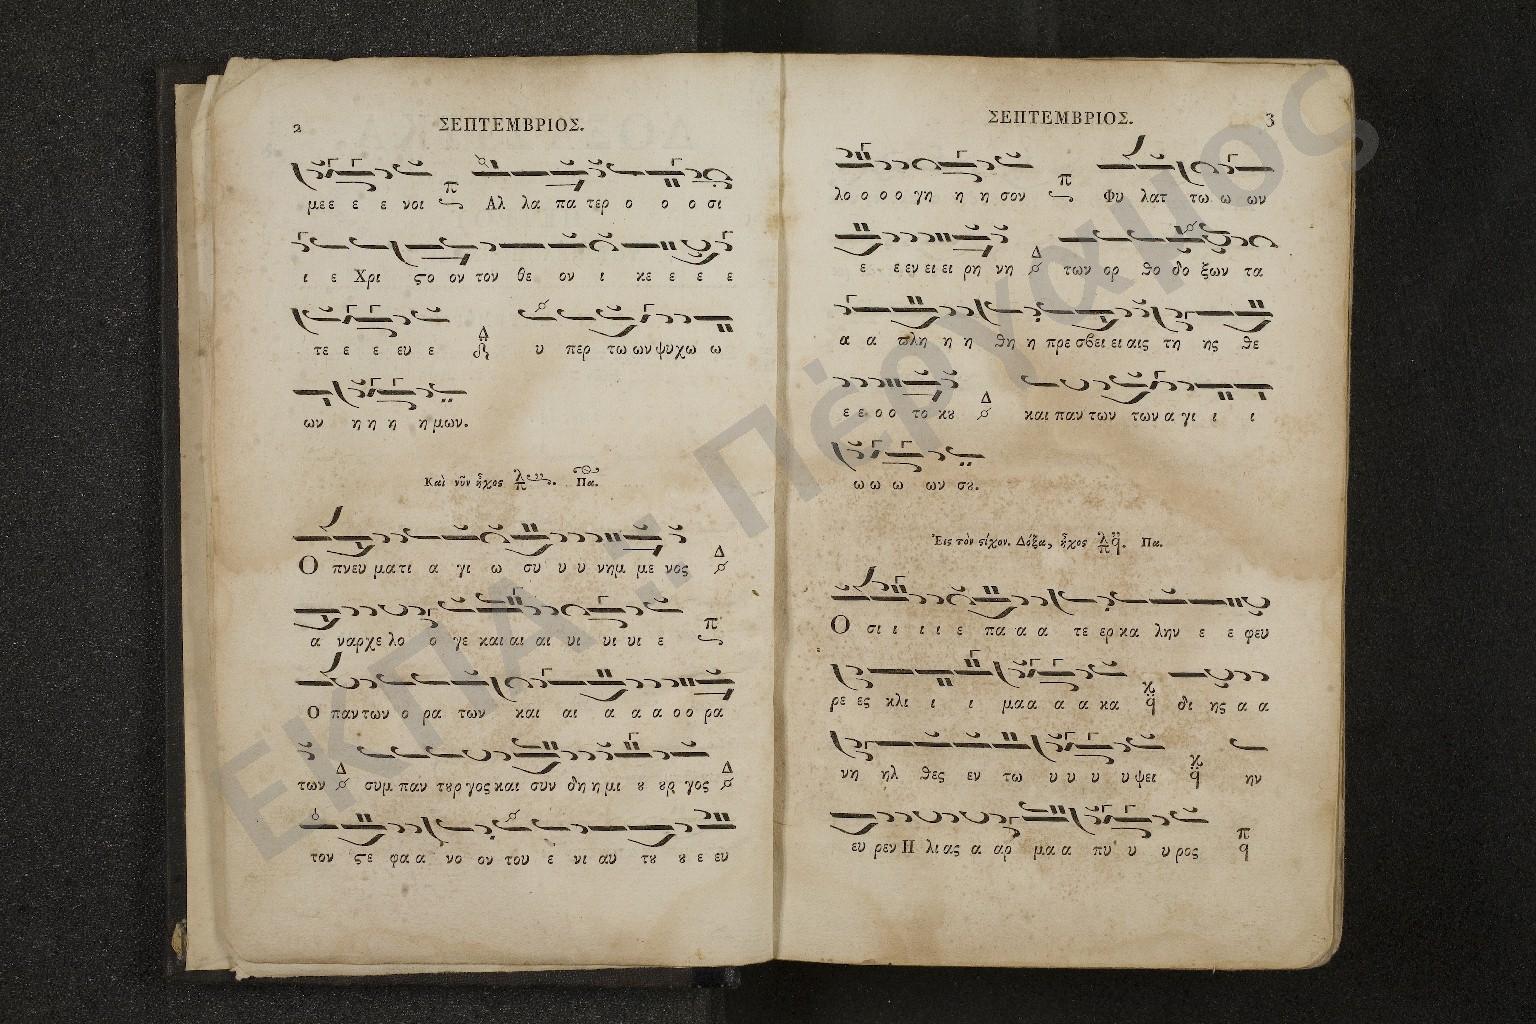 2 ΣΕΠΤΕΜΒΡΙΟΣ.
με ε ε ε νοι Αλ λα πα τερ ο ο ο σι
ι ε Χρι ϛο ον τον θε ον ι κε ε ε ε
τε ε ε ευ ε υ περ τω ων ψυχω ω
ων η η η η μων.
Καὶ νῦν ἦχος Πα.
Ο πνευ ματι α γι ω συ υ υ νημ με νος
α ναρχε λο ο γε και αι αι υι υι υι ε
Ο παν των ο ρα των και αι α α α ο ο ρα
των συμ παν τȣρ γος και συν δη η μι ȣ ȣρ γος
τον ϛε φα α νο ον του ε νι αυ τȣ ȣ ε ευ
ΣΕΠΤΕΜΒΡΙΟΣ. 3
λο ο ο ο γη η η σον Φυ λατ τω ω ων
ε ε εν ει ει ρη νη των ορ θο δο ξων τα
α α πλη η η θη η πρε σβει ει αις τη ης θε
ε ε ο ο το κȣ και παν των των α γι ι ι
ω ω ω ων σȣ.
Εἰς τὸν ϛίχον. Δόξα, ἦχος Πα.
Ο σι ι ι ι ε πα α α τε ερ κα λην ε ε φευ
ρε ες κλι ι ι μα α α α κα δι ης α α
νη ηλ θες εν τω υ υ υ υ ψει ην
ευ ρεν Η λι ας α αρ μα α πυ υ υ ρος
ΕΚΠΑ :: Πέργαμος